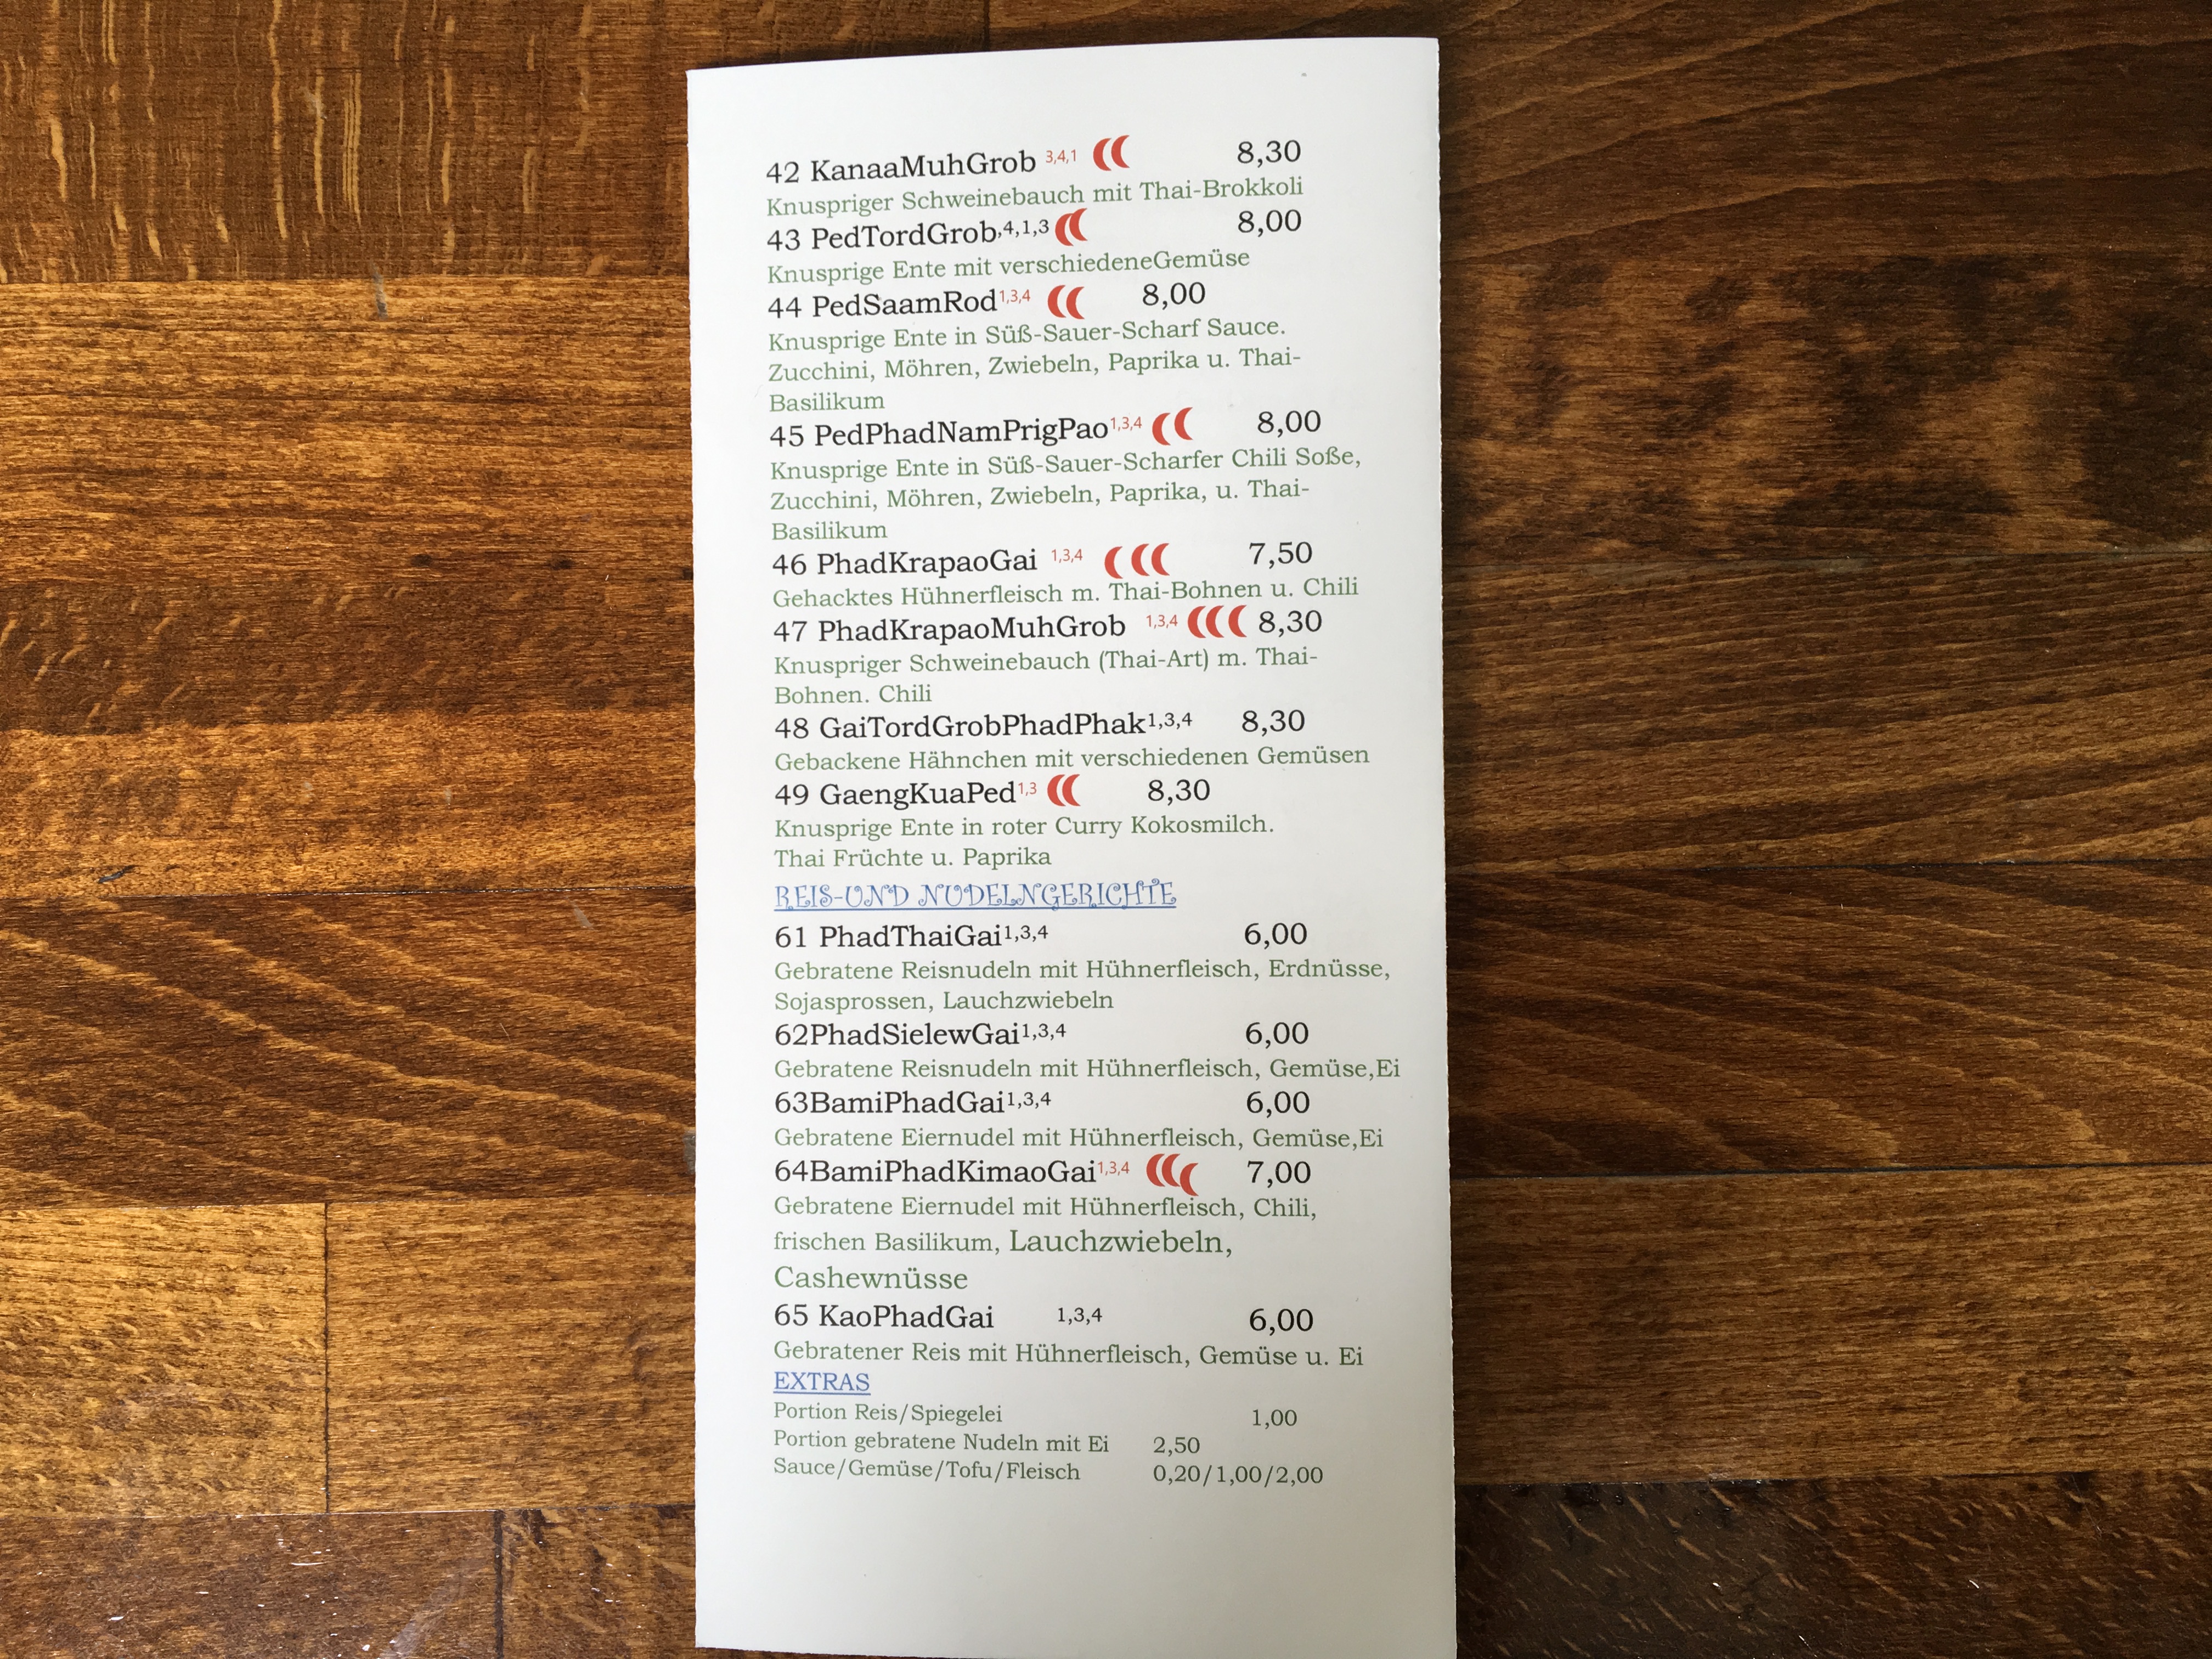 42 KanaaMuhGrob 3,4,1 8,30
Knuspriger Schweinebauch mit Thai-Brokkoli
43 PedTordGrob,4,1,3 8,00
Knusprige Ente mit verschiedeneGemüse
44 PedSaamRod1,3,4 8,00
Knusprige Ente in Süß-Sauer-Scharf Sauce.
Zucchini, Möhren, Zwiebeln, Paprika u. Thai-
Basilikum
45 PedPhadNamPrigPao1,3,4 8,00
Knusprige Ente in Süß-Sauer-Scharfer Chili Soße,
Zucchini, Möhren, Zwiebeln, Paprika, u. Thai-
Basilikum
46 PhadKrapaoGai 1,3,4 7,50
Gehacktes Hühnerfleisch m. Thai-Bohnen u. Chili
47 PhadKrapaoMuhGrob 1,3,4 8,30
Knuspriger Schweinebauch (Thai-Art) m. Thai-
Bohnen. Chili
48 GaiTordGrobPhadPhak1,3,4 8,30
Gebackene Hähnchen mit verschiedenen Gemüsen
49 GaengKuaPed1,3 8,30
Knusprige Ente in roter Curry Kokosmilch.
Thai Früchte u. Paprika
REIS-UND NUDELNGERICHTE
61 PhadThaiGai1,3,4 6,00
Gebratene Reisnudeln mit Hühnerfleisch, Erdnüsse,
Sojasprossen, Lauchzwiebeln
62PhadSielewGai1,3,4 6,00
Gebratene Reisnudeln mit Hühnerfleisch, Gemüse,Ei
63BamiPhadGai1,3,4 6,00
Gebratene Eiernudel mit Hühnerfleisch, Gemüse,Ei
64BamiPhadKimaoGai1,3,4 7,00
Gebratene Eiernudel mit Hühnerfleisch, Chili,
frischen Basilikum, Lauchzwiebeln,
Cashewnüsse
65 KaoPhadGai 1,3,4 6,00
Gebratener Reis mit Hühnerfleisch, Gemüse u. Ei
EXTRAS
Portion Reis/Spiegelei 1,00
Portion gebratene Nudeln mit Ei 2,50
Sauce/Gemüse/Tofu/Fleisch 0,20/1,00/2,00